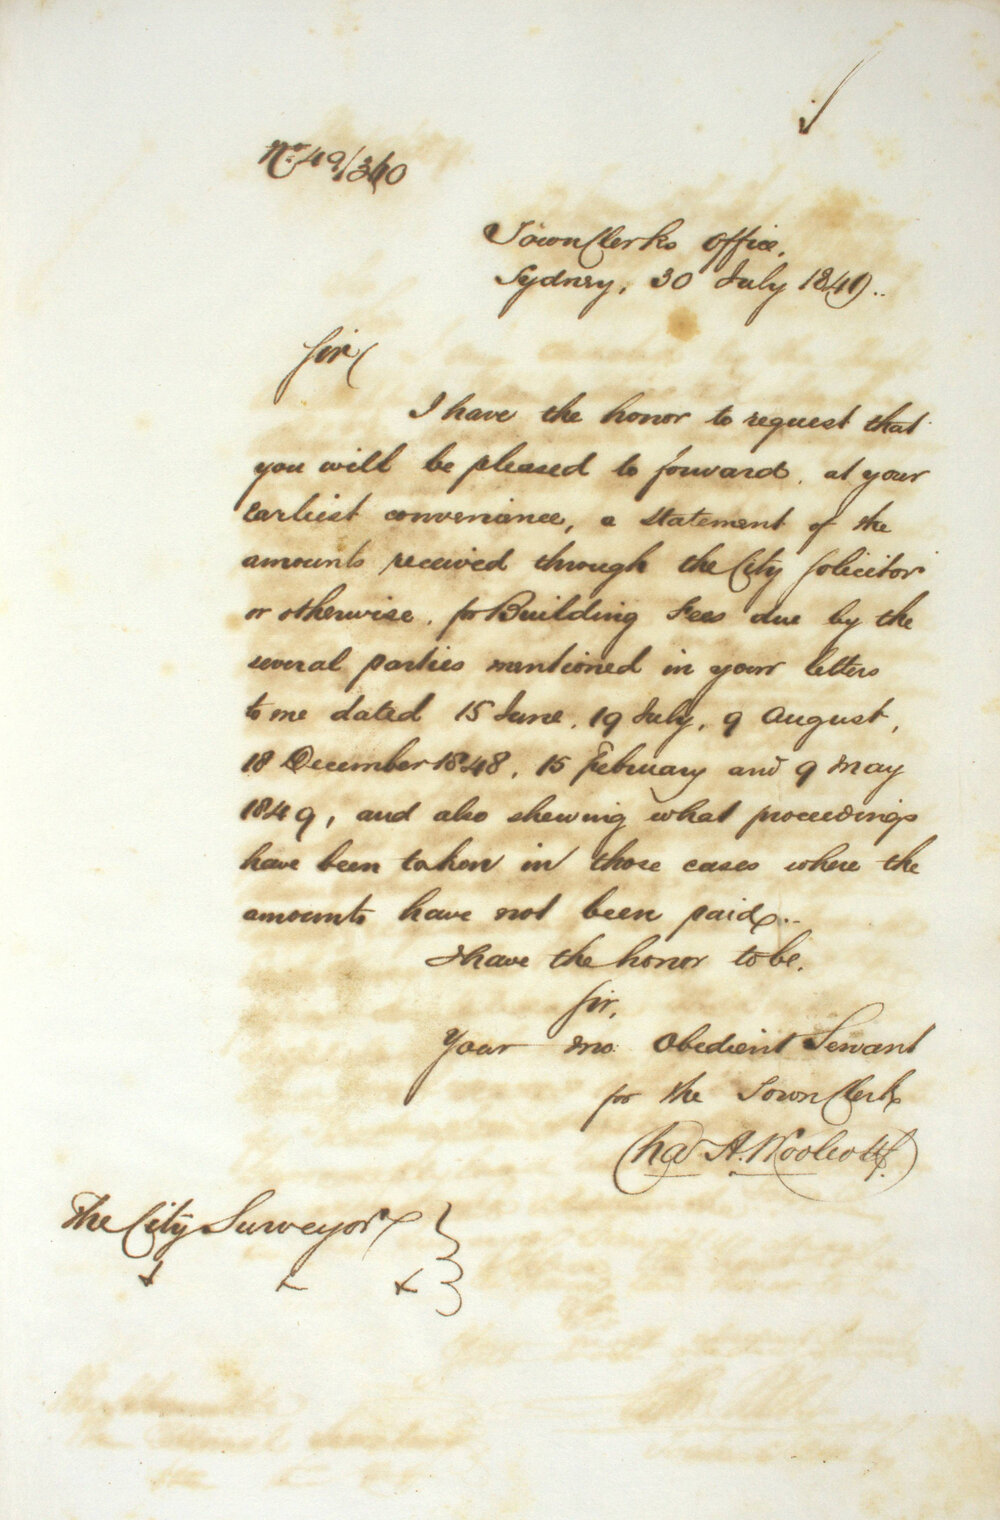 No. 49/340
Town Clerks Office,
Sydney, 30 July 1849..
Sir,
I have the honor to request that
you will be pleased to forward, at your
earliest convenience, a statement of the
amounts received through the City Solicitor
or otherwise, for Building Fees due by the
several parties mentioned in your letters
to me dated 15 June, 19 July, 9 August,
18 December 1848, 15 February and 9 May
1849, and also shewing what proceedings
have been taken in those cases where the
amounts have not been paid..
I have the honor to be,
Sir,
Your mo. Obedient Servant
for the Town Clerk
Chas A. Woolcott
The City Surveyor